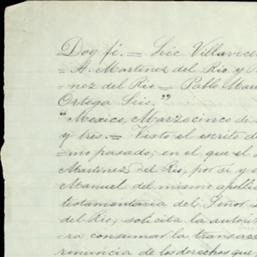 Doy fé. = Lic Villavice
= A. Martinez del Rio y
nez del Rio = Pablo Mar
Ortega Lic."
"Mexico, Marzo cinco de
y tres. = Visto el escrito d
mo pasado; en el que el
Martinez del Rio, por si y
Manuel del mismo apelli
testamentaria del Señor
del Rio, solicita la autori
ra consumar la transac
renuncia de los derechos que